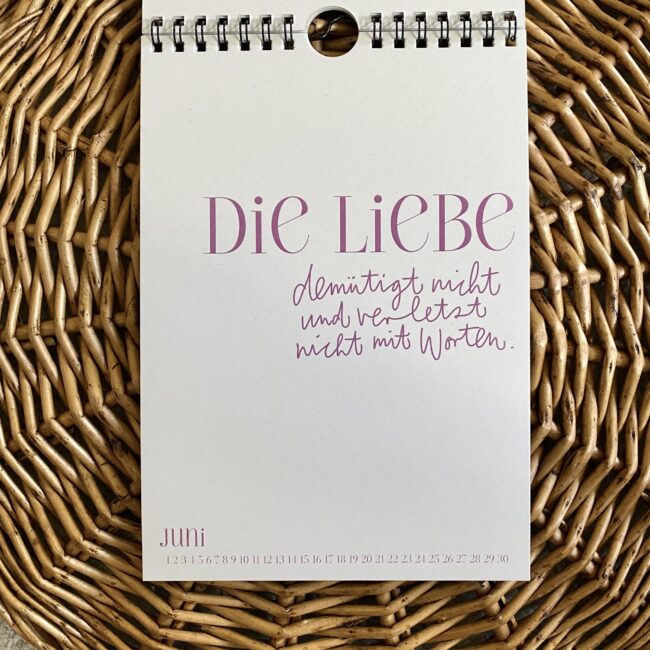 Die Liebe
demütigt nicht
und verletzt
nicht mit Worten.
Juni
1 2 3 4 5 6 7 8 9 10 11 12 13 14 15 16 17 18 19 20 21 22 23 24 25 26 27 28 29 30